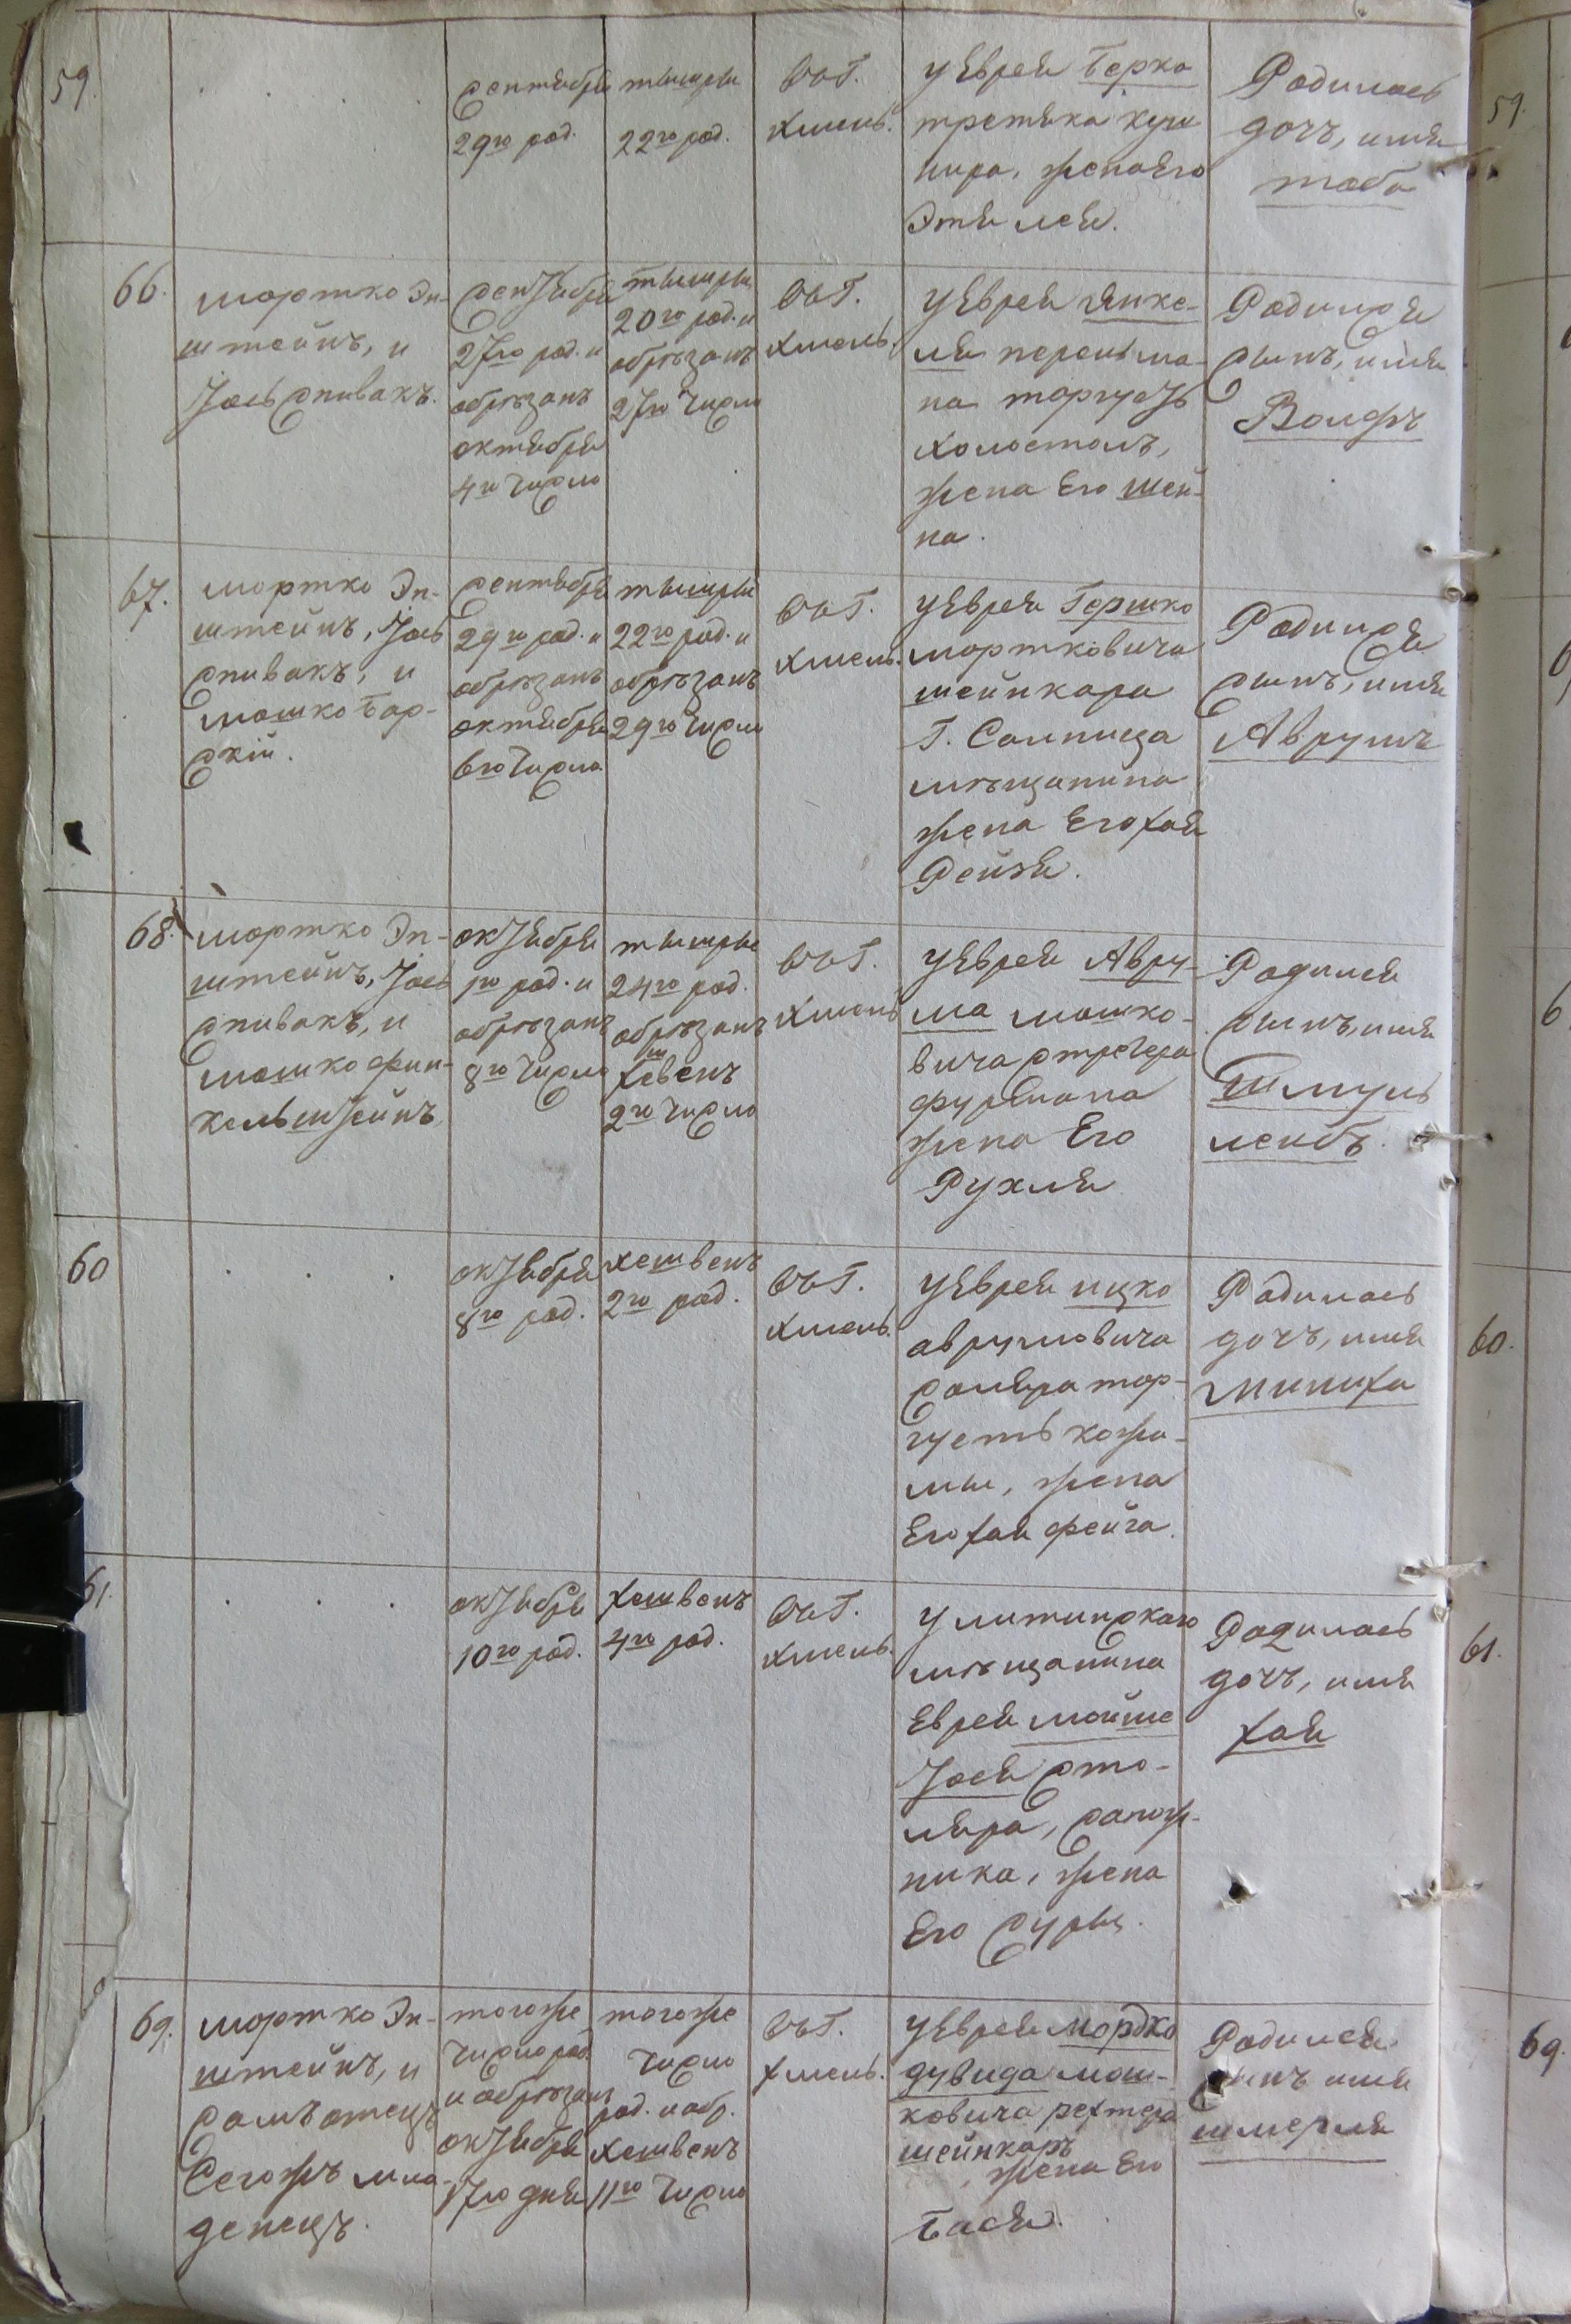 59.
сентября
29го род.
тышры
22го род.
въ Г.
хмель.
у Еврея Берка
третяка куш
нира, жена Его
Этя лея.
Родилась
дочь, имя
тоба
59.
66.
мортко Эп-
штейнъ, и
Іось спивакъ.
сентября
27го род. и
обрѣзанъ
октября
4го числа
тышры
20го род. и
обрѣзанъ
27го числа
въ Г.
хмель.
у Еврея Янке-
ля перельма-
на торгуетъ
холостомъ,
жена Его шей-
на.
Родился
сынъ, имя
Волфъ
67.
мортко Эп-
штейнъ, Іось
спивакъ, и
мошко Бар-
скій.
сентября
29го род. и
обрѣзанъ
октября
6го числа
тышры
22го род. и
обрѣзанъ
29го числа
въ Г.
хмель.
у Еврея Гершко
мортковича
шейнкара
Г. Солпица
мѣщанина
жена Его хая
Рейзя.
Родился
сынъ, имя
Аврумъ
68.
мортко Эп-
штейнъ, Іось
спивакъ, и
мошко фин-
кельштейнъ
октября
1го род. и
обрѣзанъ
8го числа
тышры
24го род.
обрѣзанъ
хешвенъ
2го числа
въ Г.
хмель
у Еврея Авру-
ма мошко-
вича
фурмана
жена Его
Рухля
Родился
сынъ, имя
Шмуль
лейбъ.
60
октября
8го род.
хешвенъ
2го род.
въ Г.
хмель.
у Еврея ицко
аврумовича
соляра тор-
гуетъ кожа-
мы, жена
Его хая фейга.
Родилась
дочъ, имя
миниха
60.
61.
октября
10го род.
хешвенъ
4го род.
въ Г.
хмель.
у литинскаго
мѣщанина
Еврея мойше
Іося сто-
ляра, сапож-
ника, жена
Его суры.
Родилась
дочъ, имя
хая
61.
69.
мортко Эп-
штейнъ, и
самъ отецъ
Сегожъ мла-
денецъ.
тогоже
числа род.
и обрѣзанъ
октября
17го дня
тогоже
числа
род. и обр.
хешвенъ
11го числа
въ Г.
хмель.
у Еврея Мордко
дувида мош-
ковича рехтера
шейнкаръ
жена Его
Бася.
Родился
сынъ имя
шмерля
69.